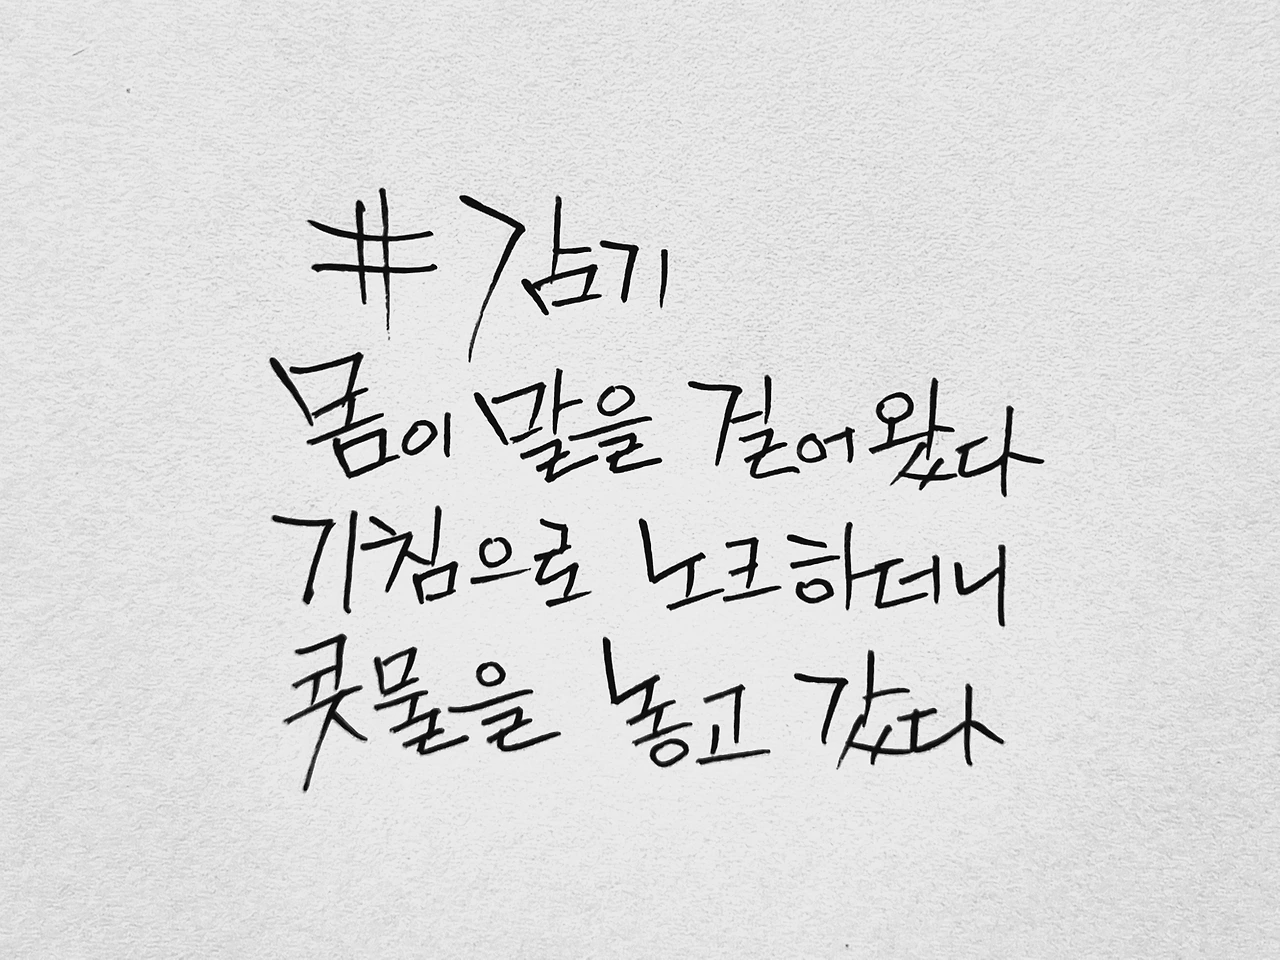 #감기
몸이 말을 걸어왔다
기침으로 노크하더니
콧물을 놓고 갔다